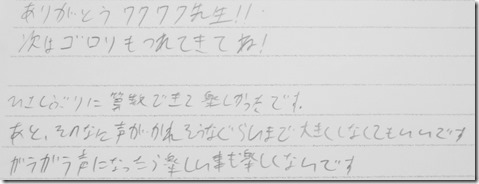 ありがとうワクワク先生!!
次はゴロリもつれてきてね!
ひさしぶりに算数できて楽しかったです。
あと、そんなに声がかれそうなぐらいまで大きくしなくてもいいです
ガラガラ声になったら楽しい事も楽しくないです